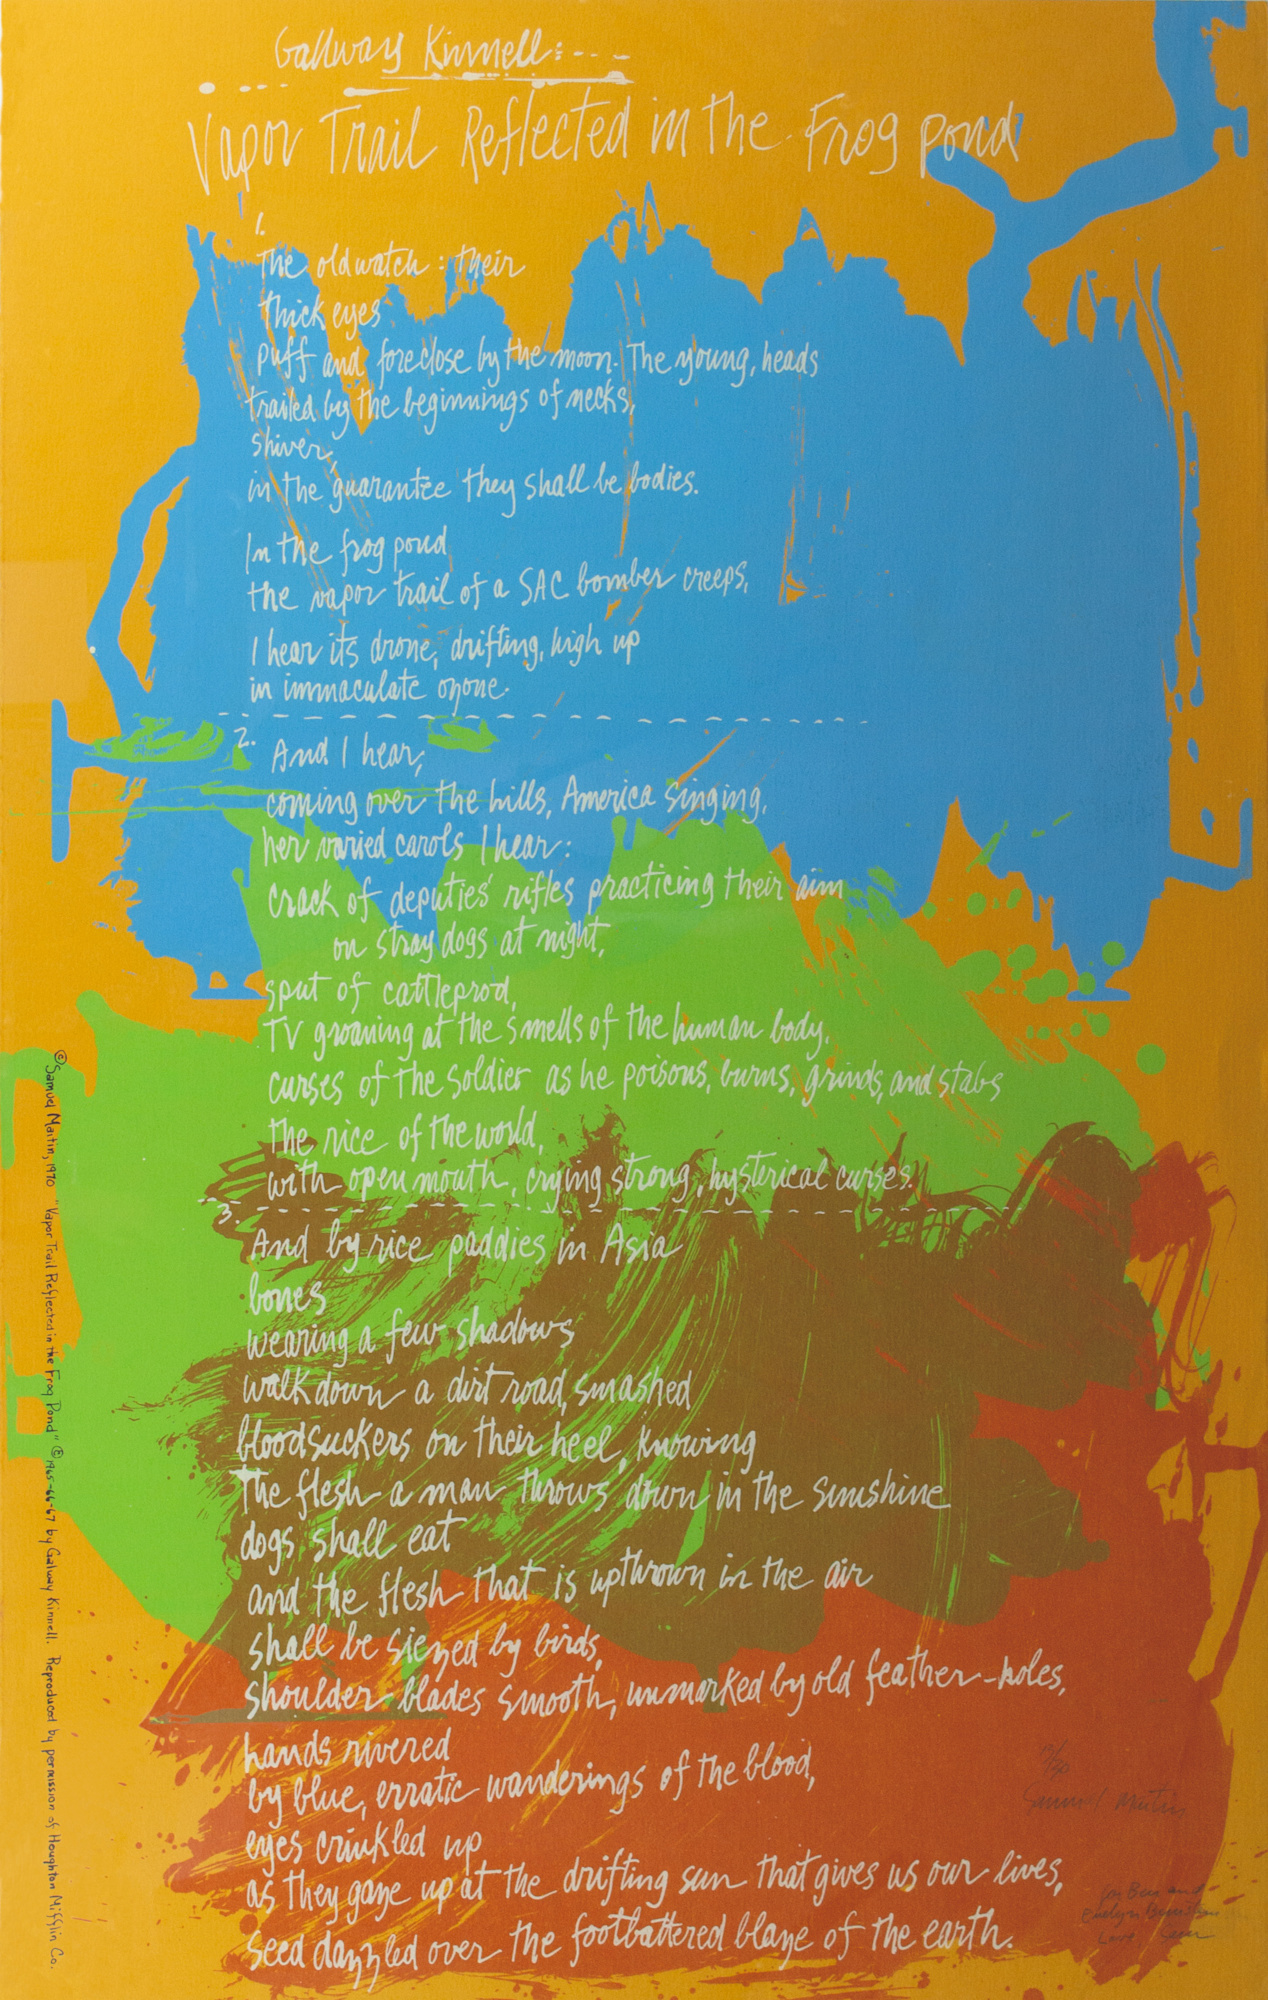 Gallway Kinnell:---
Vapor Trail Reflected in the Frog Pond
1.
The old watch: their
thick eyes
puff and foreclose by the moon. The young, heads
trailed by the beginnings of necks,
shiver,
in the guarantee they shall be bodies.
In the frog pond
the vapor trail of a SAC bomber creeps,
I hear its drone, drifting, high up
in immaculate ozone.
2.
And I hear,
coming over the hills, America singing,
her varied carols I hear:
crack of deputies' rifles practicing their aim
on stray dogs at night,
sput of cattleprod,
TV groaning at the smells of the human body,
curses of the soldier as he poisons, burns, grinds, and stabs
the rice of the world,
with open mouth, crying strong, hysterical curses.
3.
And by rice paddies in Asia
bones
wearing a few shadows
walk down a dirt road, smashed
bloodsuckers on their heel, knowing
The flesh a man throws down in the sunshine
dogs shall eat
and the flesh that is upthrown in the air
shall be siezed by birds,
shoulder blades smooth, unmarked by old feather-holes,
hands rivered
by blue, erratic wanderings of the blood,
eyes crinkled up
as they gaze up at the drifting sun that gives us our lives,
seed dazzled over the footbattered blaze of the earth.
© Samuel Maitin, 1970 "Vapor Trail Reflected in the Frog Pond" © 1965-66-67 by Galway Kinnell. Reproduced by permission of Houghton Mifflin Co.
Samuel Maitin
for Ben and
Evelyn
Love Sam